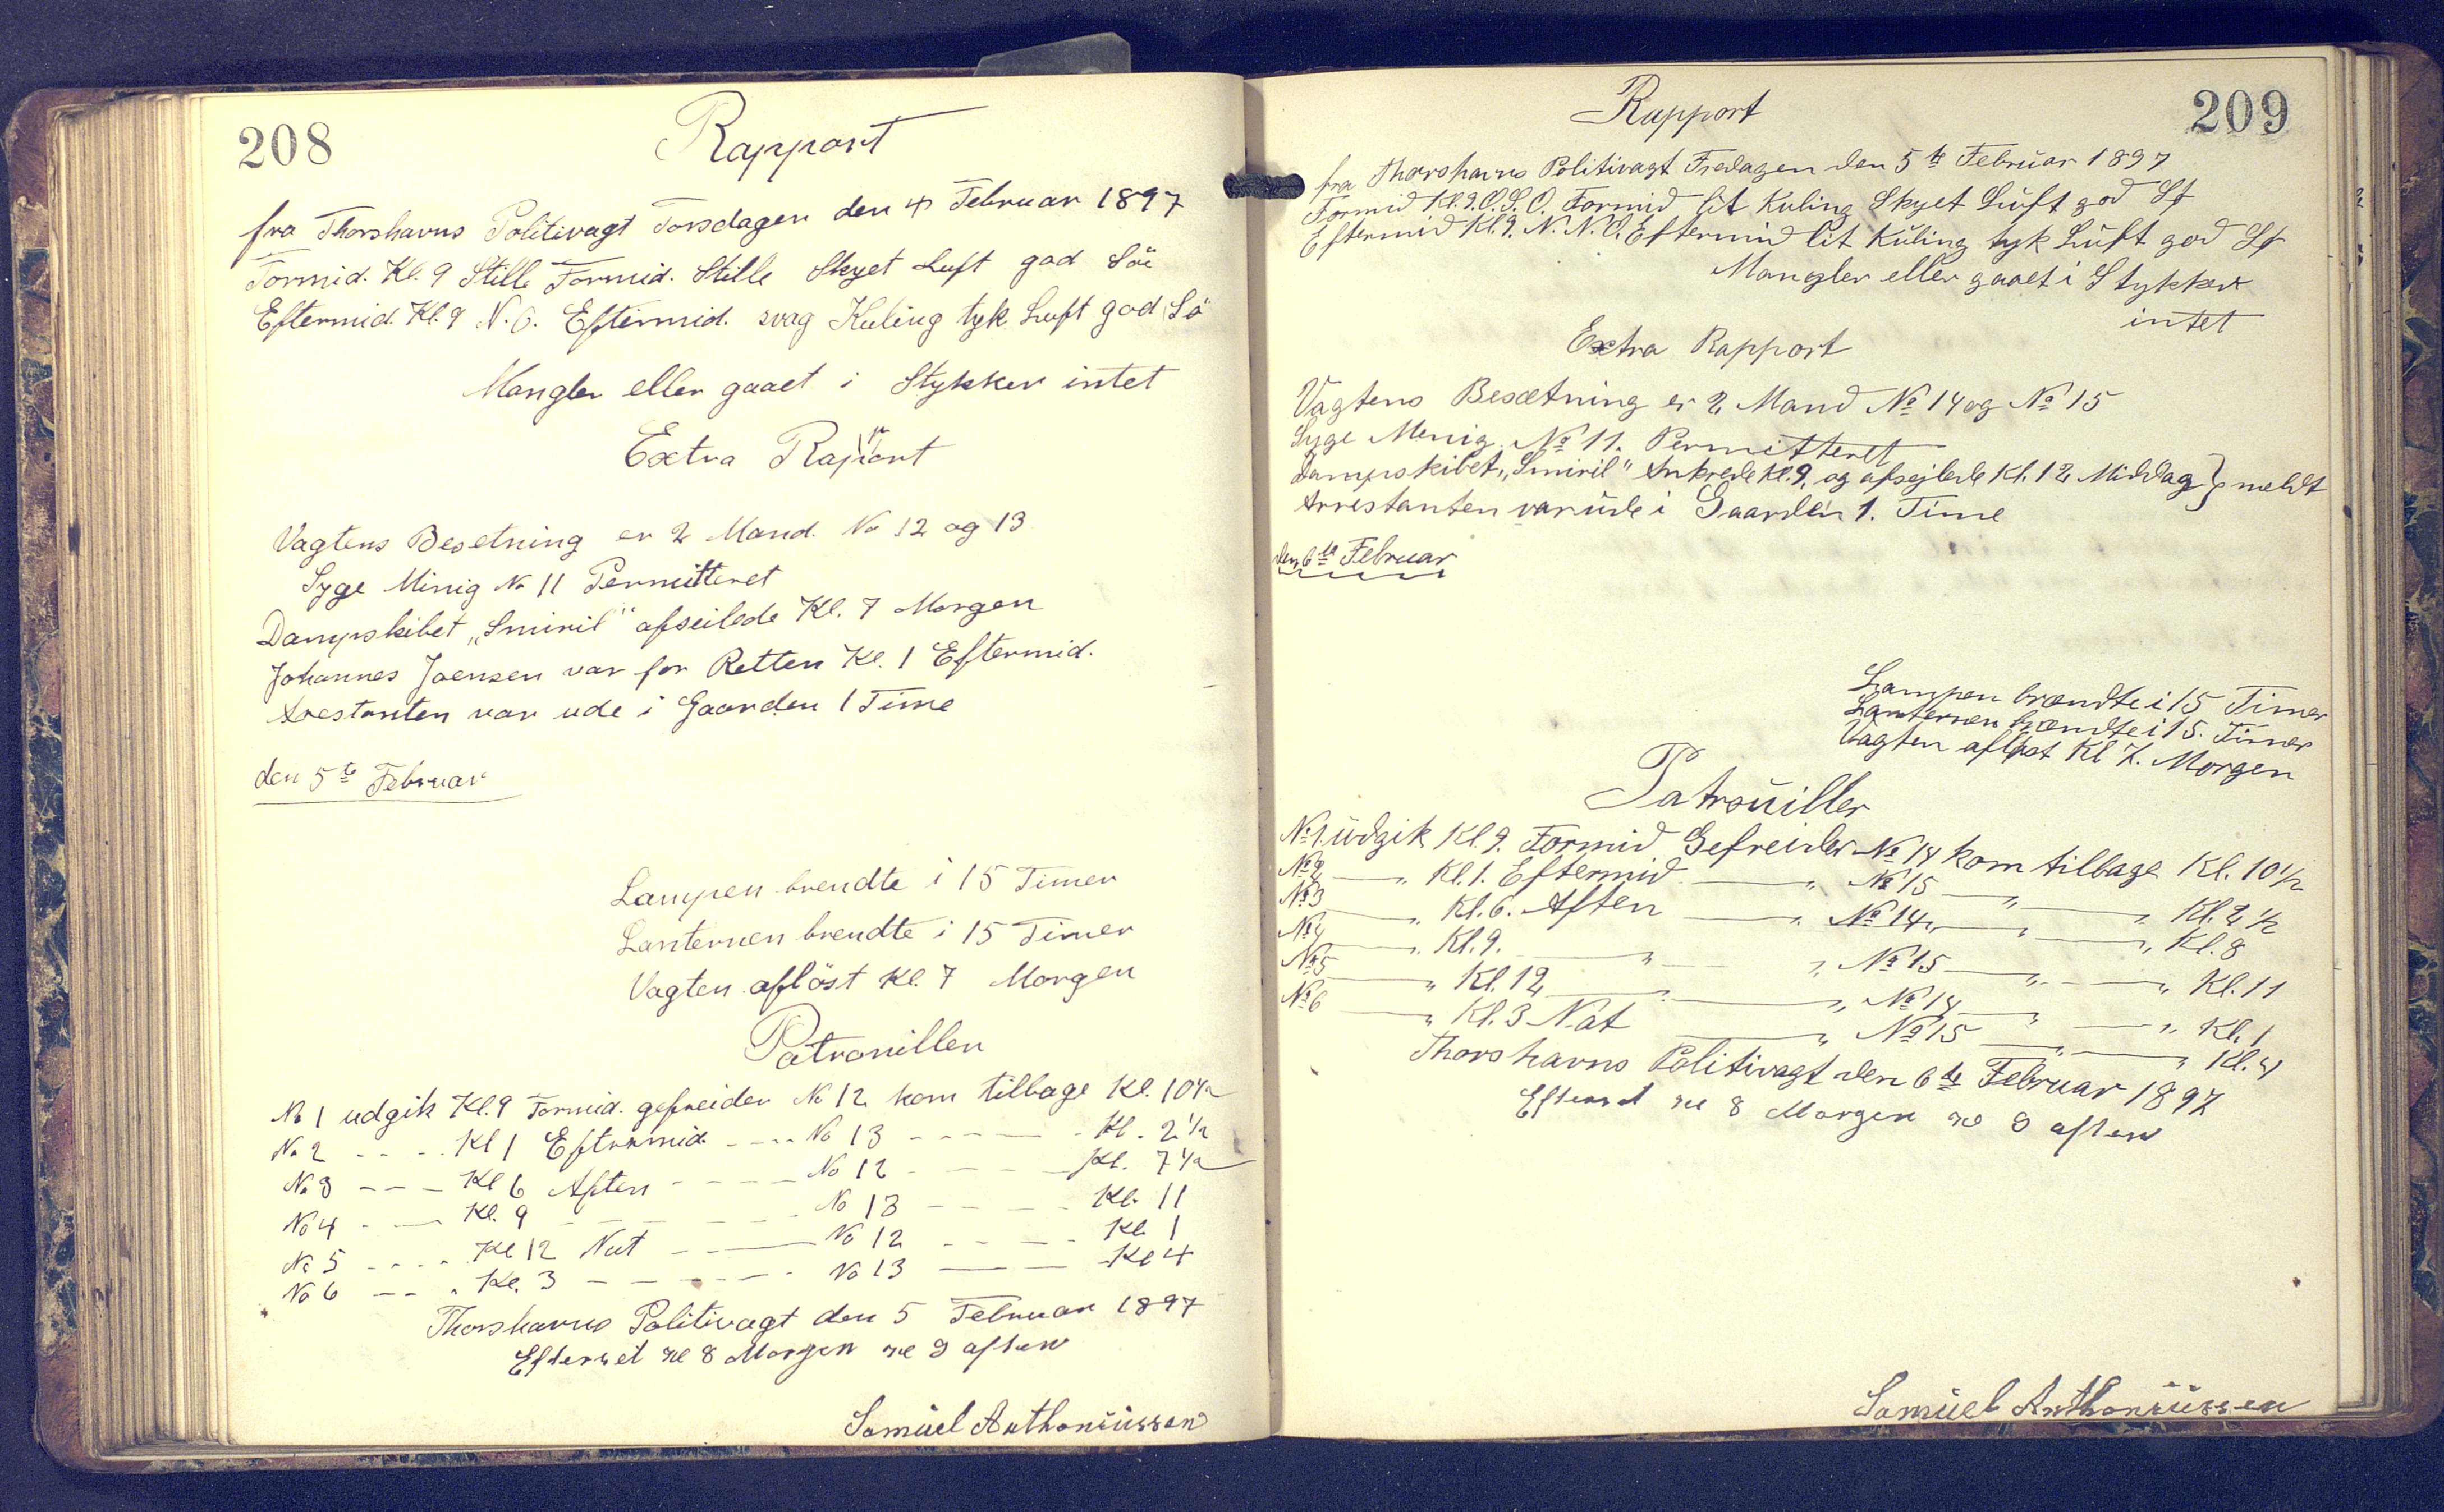 208
Rapport
fra Thorshavns Politivagt Torsdagen den 4 Februar 1897
Formid. Kl. 9 Stille Formid. Stille Skyet Luft god Sö
Eftermid. Kl. 9 N.O. Eftermid. svag Kuling tyk Luft god Sö
Mangler eller gaaet i Stykker intet
Extra Rapport
Vagtens Besetning er 2 Mand. No 12 og 13
Syge Minig No 11 Permitteret
Dampskibet „Smiril" afseilede Kl. 7 Morgen
Johannes Joensen var for Retten Kl. 1 Eftermid.
Arestanten var ude i Gaarden 1 Time
den 5te Februar
Lampen brendte i 15 Timer
Lanternen brendte i 15 Timer
Vagten aflöst Kl. 7 Morgen
Patrouillen
No 1 udgik Kl. 9 Formid. gefreider No 12 kom tilbage Kl. 10½
No 2 - - - - Kl 1 Eftermid - - - - No 13 - - - - - Kl. 2½
No 3 - - - Kl 6 Aften - - - - No 12 - - - - Kl. 7½
No 4 - - - Kl. 9 - - - - - No 13 - - - - - Kl. 11
No 5 - - - - Kl 12 Nat - - - No 12 - - - - Kl. 1
No 6 - - - „ Kl. 3 - - - - - No 13 - - - Kl 4
Thorshavns Politivagt den 5 Februar 1897
Efterset Kl 8 Morgen Kl 9 aften
Samuel Anthoniussen
209
Rapport
fra Thorshavns Politivagt Fredagen den 5te Februar 1897
Formid Kl. 9. O.S.O. Formid lit Kuling Skyet Luft god Sø
Eftermid Kl. 9. N.N.O. Eftermid lit Kuling tyk Luft god Sø
Mangler eller gaaet i Stykker
intet
Extra Rapport
Vagtens Besætning er 2 Mand No 14 og No 15
Syge Menig No 11. Permitteret
Dampskibet „Smiril" Ankrede Kl. 9, og afsejlede Kl. 12 Middag } meldt
Arrestanten var ude i Gaarden 1. Time
den 6te Februar
Lampen brændte i 15 Timer
Lanternen brændte i 15. Timer
Vagten afløst Kl 7. Morgen
Patrouiller
No 1. udgik Kl. 9. Formid Gefreider No 14 kom tilbage Kl. 10½
No 2 — „ Kl. 1. Eftermid — „ No 15 — „ — „ Kl. 2½
No 3 — „ Kl. 6. Aften — „ No 14 — „ — „ Kl. 8
No 4 — „ Kl. 9. — „ — „ No 15 — „ — „ Kl. 11
No 5 — „ Kl. 12 — „ — „ No 14 — „ — „ Kl. 1
No 6 — „ Kl. 3 Nat — „ No 15 — „ — „ Kl. 4
Thorshavns Politivagt den 6te Februar 1897
Efterset Kl 8 Morgen Kl 9 aften
Samuel Anthoniussen